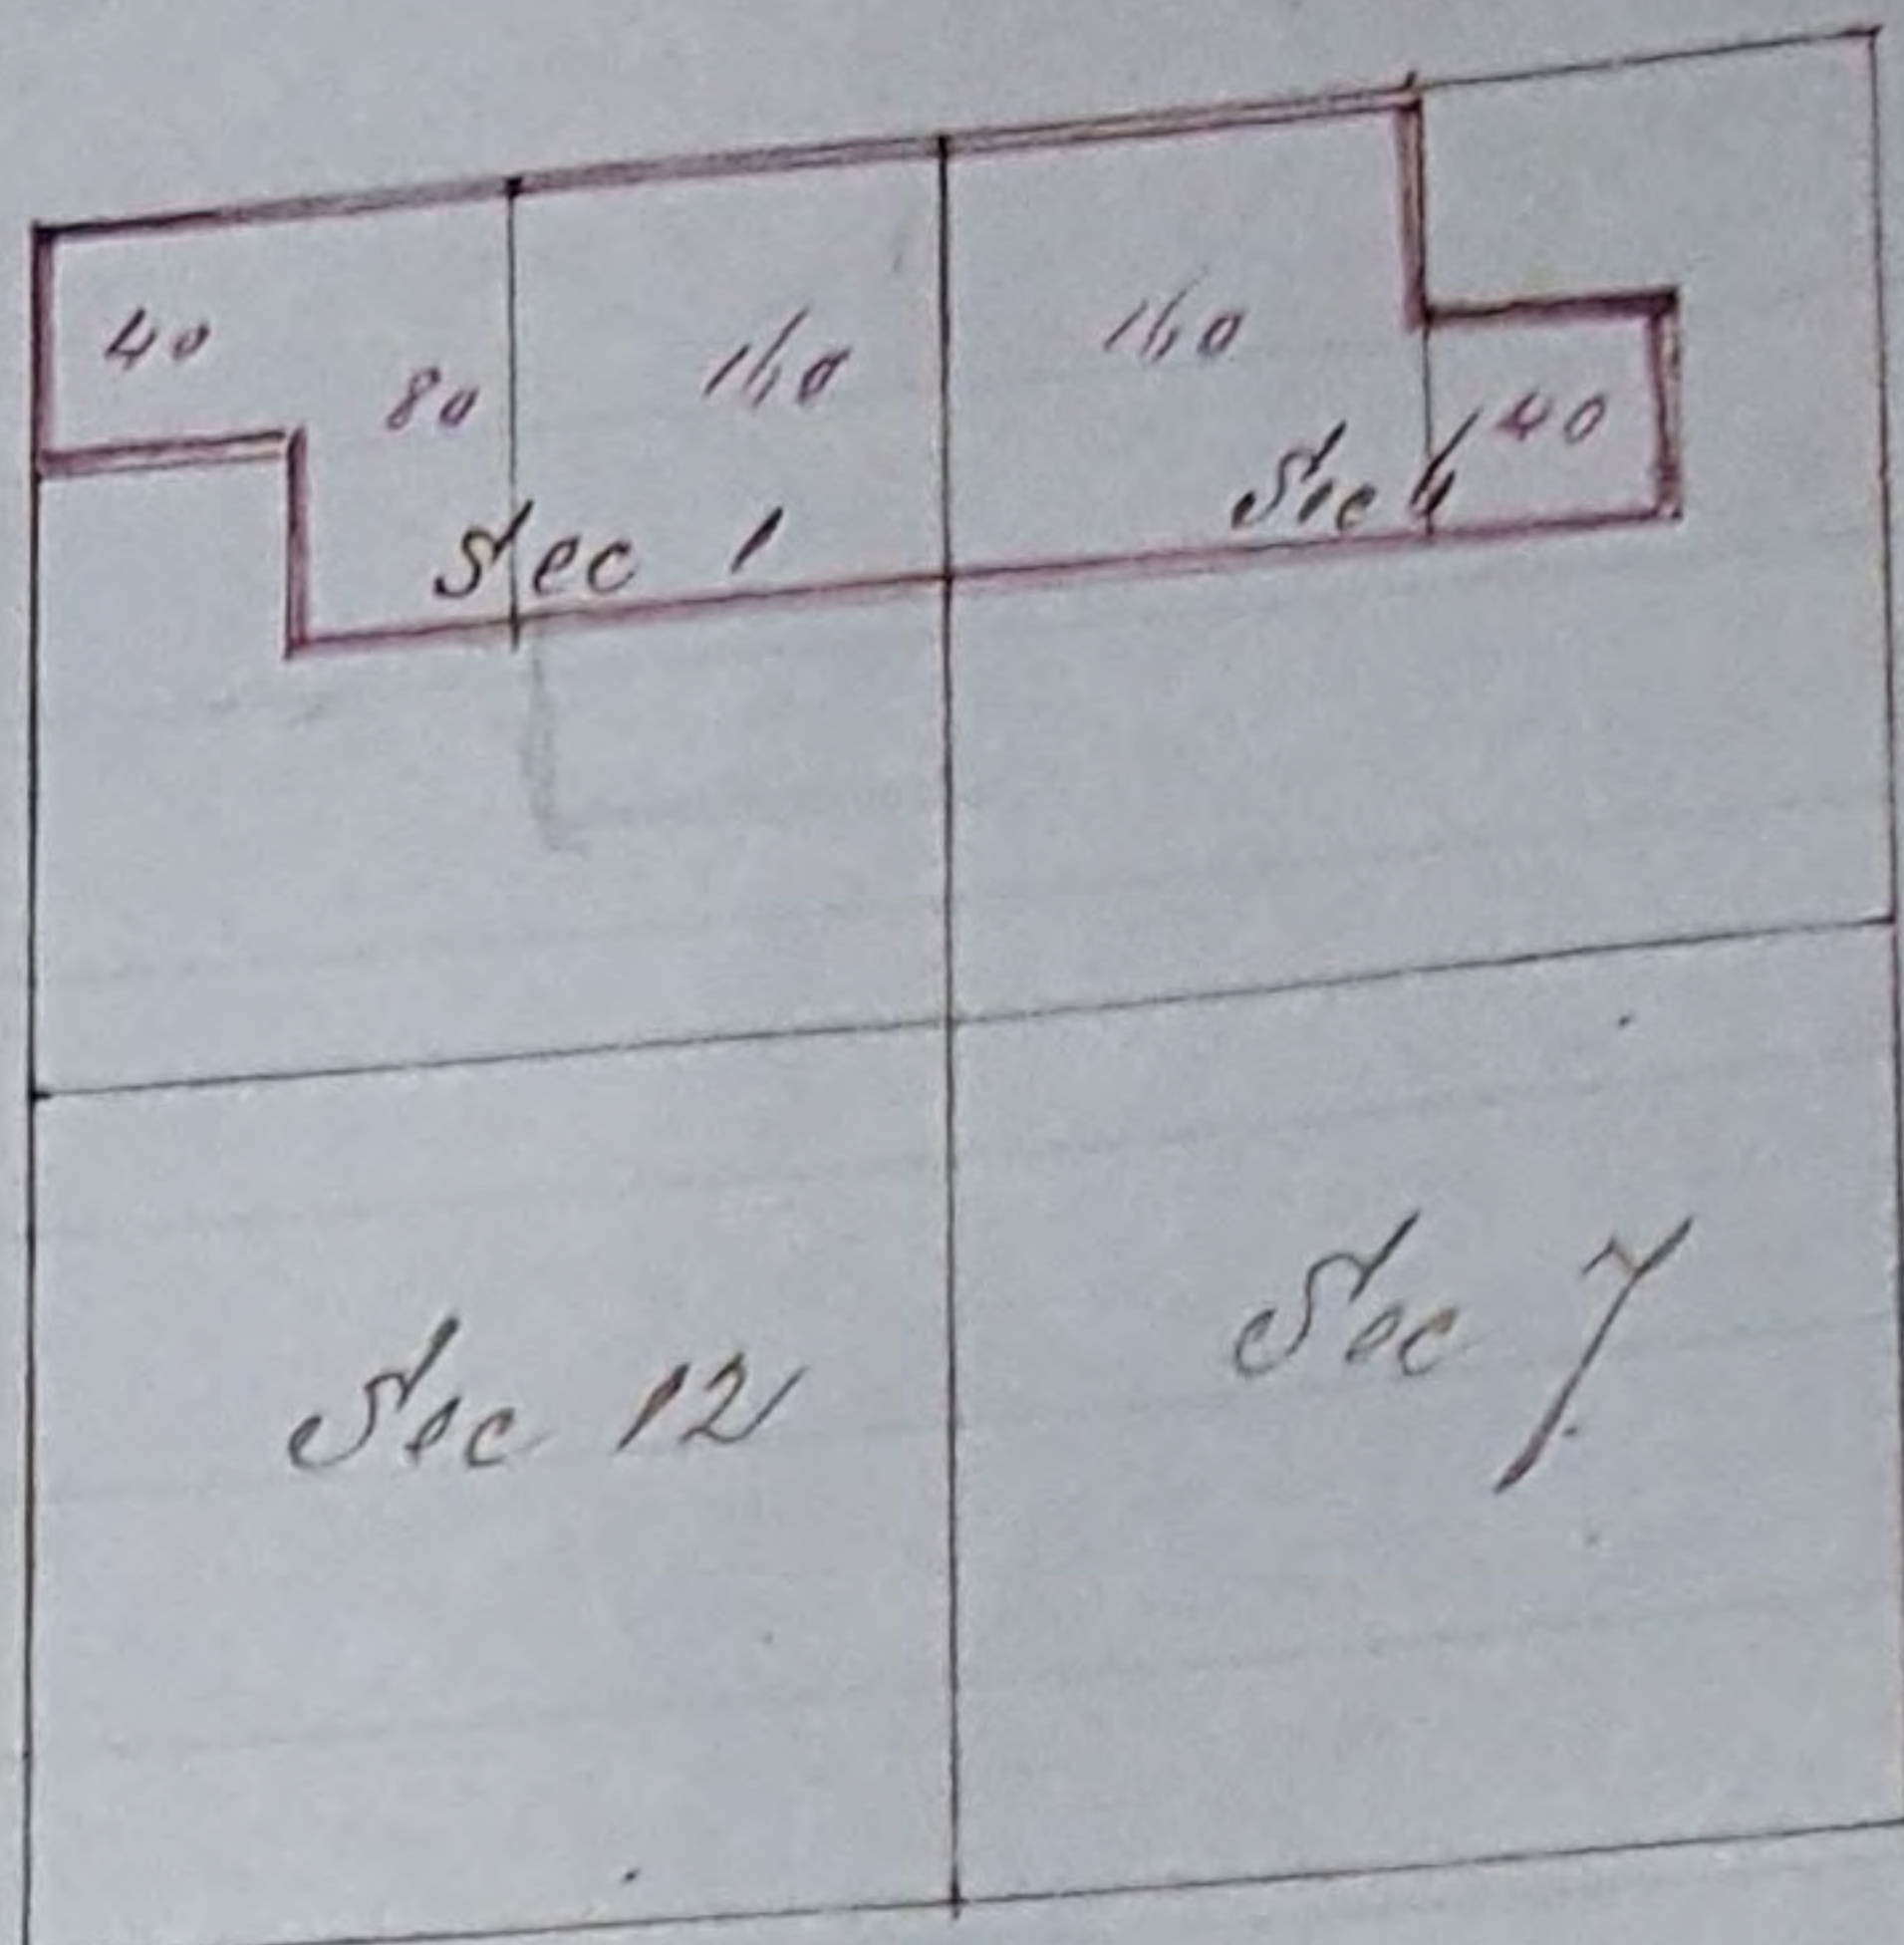 40
80
160
160
40
Sec 1
Sec 6
Sec 12
Sec 7